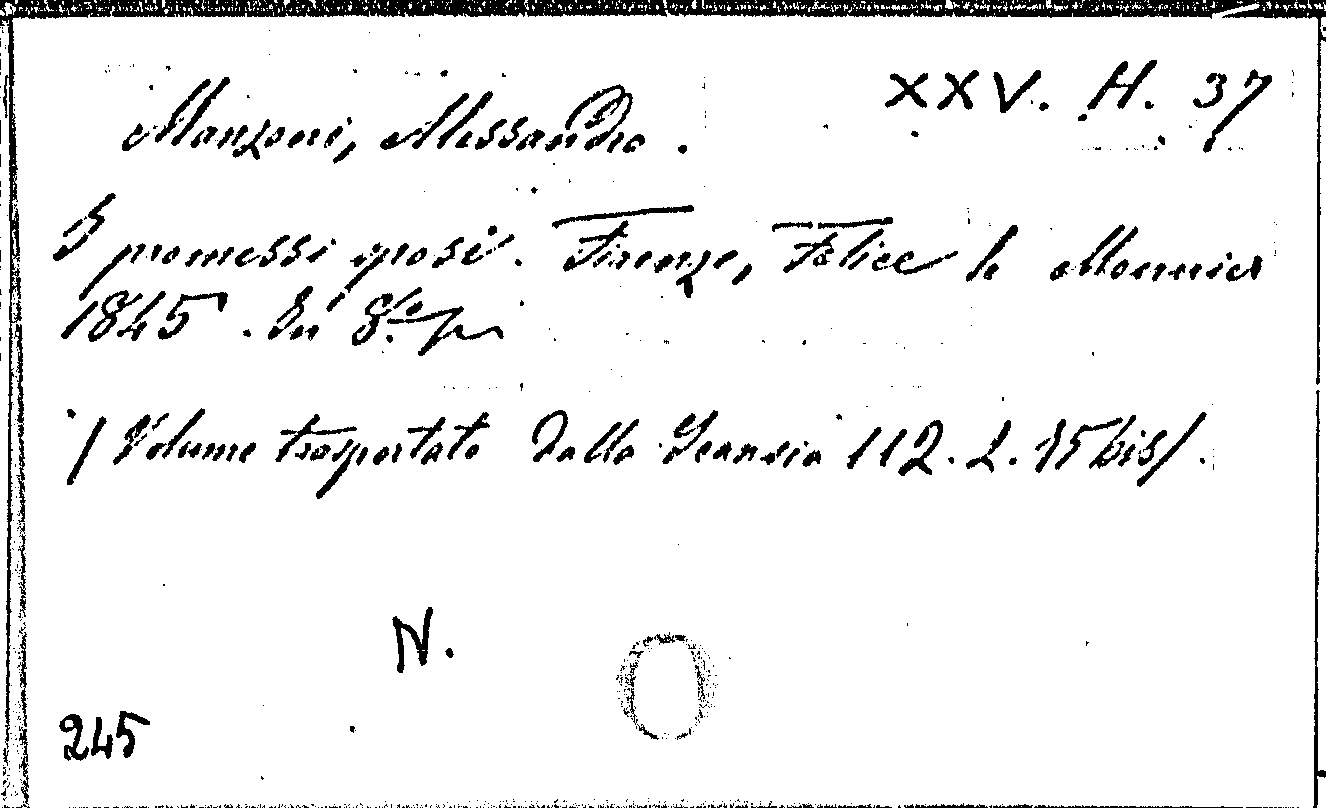 XXV. H. 37
Manzoni, Alessandro.
I promessi sposi. Firenze, Felice le Monnier
1845. In 8.º p
/ Volume trasportato dalla Scansia 112. 2. 15 bis/.
N.
245